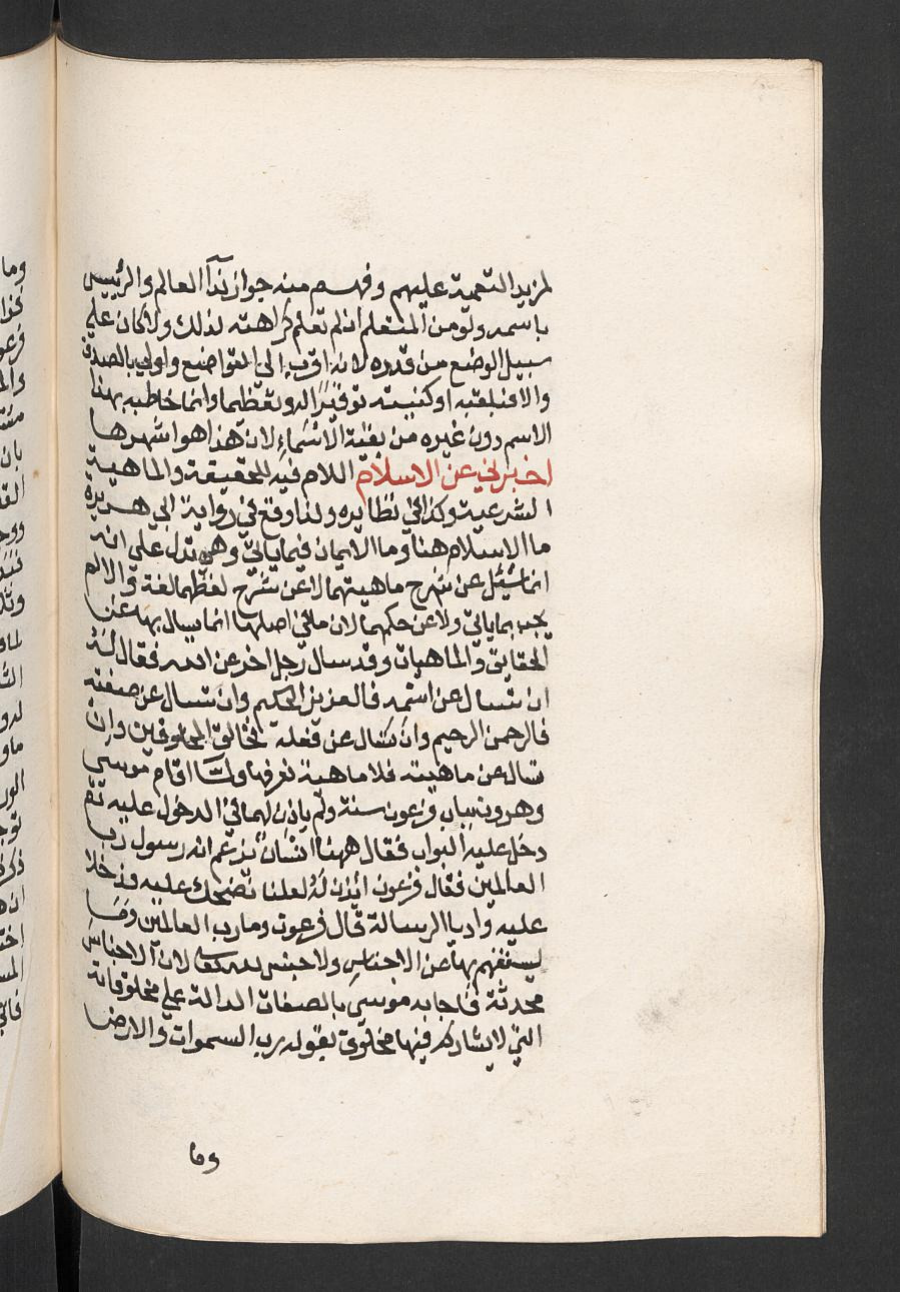 لمزيد التعمية عليهم وفهم منه جواز ندآ العالم والرئيس
باسمه ولو من المتعلم ان لم تعلم كراهته لذلك ولا كان علي
سبيل الوضع من قدره لانه اقرب الي التواضع واولي بالصدق
والا فبلقبه او كنيته توقيرًا له وتعظيما وانما خاطبه بهذا
الاسم دون غيره من بقية الاسماءِ لان هذا هو اشهرها
اخبرني عن الاسلام اللام فيه للحقيقة والماهية
الشرعية وكذا في نظايره ولذا وقع في رواية ابي هريرة
ما الاسلام هنا وما الايمان فيما ياتي وهي تدل علي انه
انما سُئل عن شرح ماهيتهما لا عن شرح لفظهما لغة والا لم
يجب بما ياتي ولا عن حكمهما لان ما في اصلها انما يسال بها عن
الحقايق والماهيات وقد سال رجل اخر عن الله فقال له
ان تسال عن اسمه فالعزيز الحكيم وان تسال عن صفته
فالرحمن الرحيم وان تسال عن فعله فخالق المخلوقين وان
تسال عن ماهيته فلا ماهية نعرفها ولما اقام موسي
وهرون بباب فرعون سنة ولم ياذن لهما في الدخول عليه ثم
دخل عليه البواب فقال ههنا انسان يزعم انه رسول رب
العالمين فقال فرعون ائذن له لعلنا نضحك عليه فدخلا
عليه واديا الرسالة قال فرعون وما رب العالمين وما
يستفهم بها عن الاجناس ولا جنس لله تعالى لان الاجناس
محدثة فاجابه موسي بالصفات الدالة علي مخلوقاته
التي لا يشاركه فيها مخلوق بقوله رب السموات والارض
وما